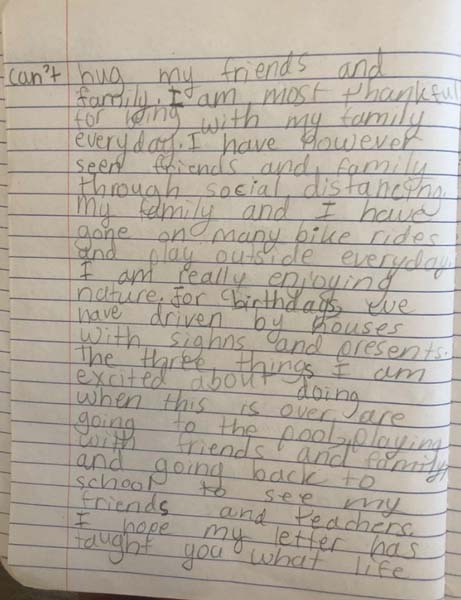 can't hug my friends and
family. I am most thankful
for being with my family
everyday. I have however
seen friends and family
through social distancing.
My family and I have
gone on many bike rides
and play outside everyday.
I am really enjoying
nature. For birthdays, we
have driven by houses
with sighns and presents.
The three things I am
excited about doing
when this is over are
going to the pool, playing
with friends and family,
and going back to
school to see my
friends and teachers.
I hope my letter has
taught you what life